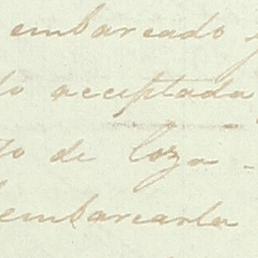 embarcado
do aceptada
de loza
embarcarla